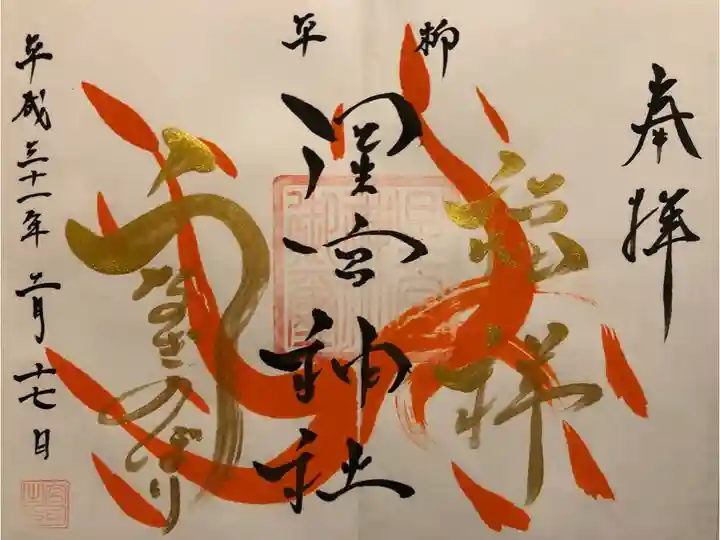 奉拝
平柳
星宮神社
うなぎのぼり
平成三十一年二月十七日